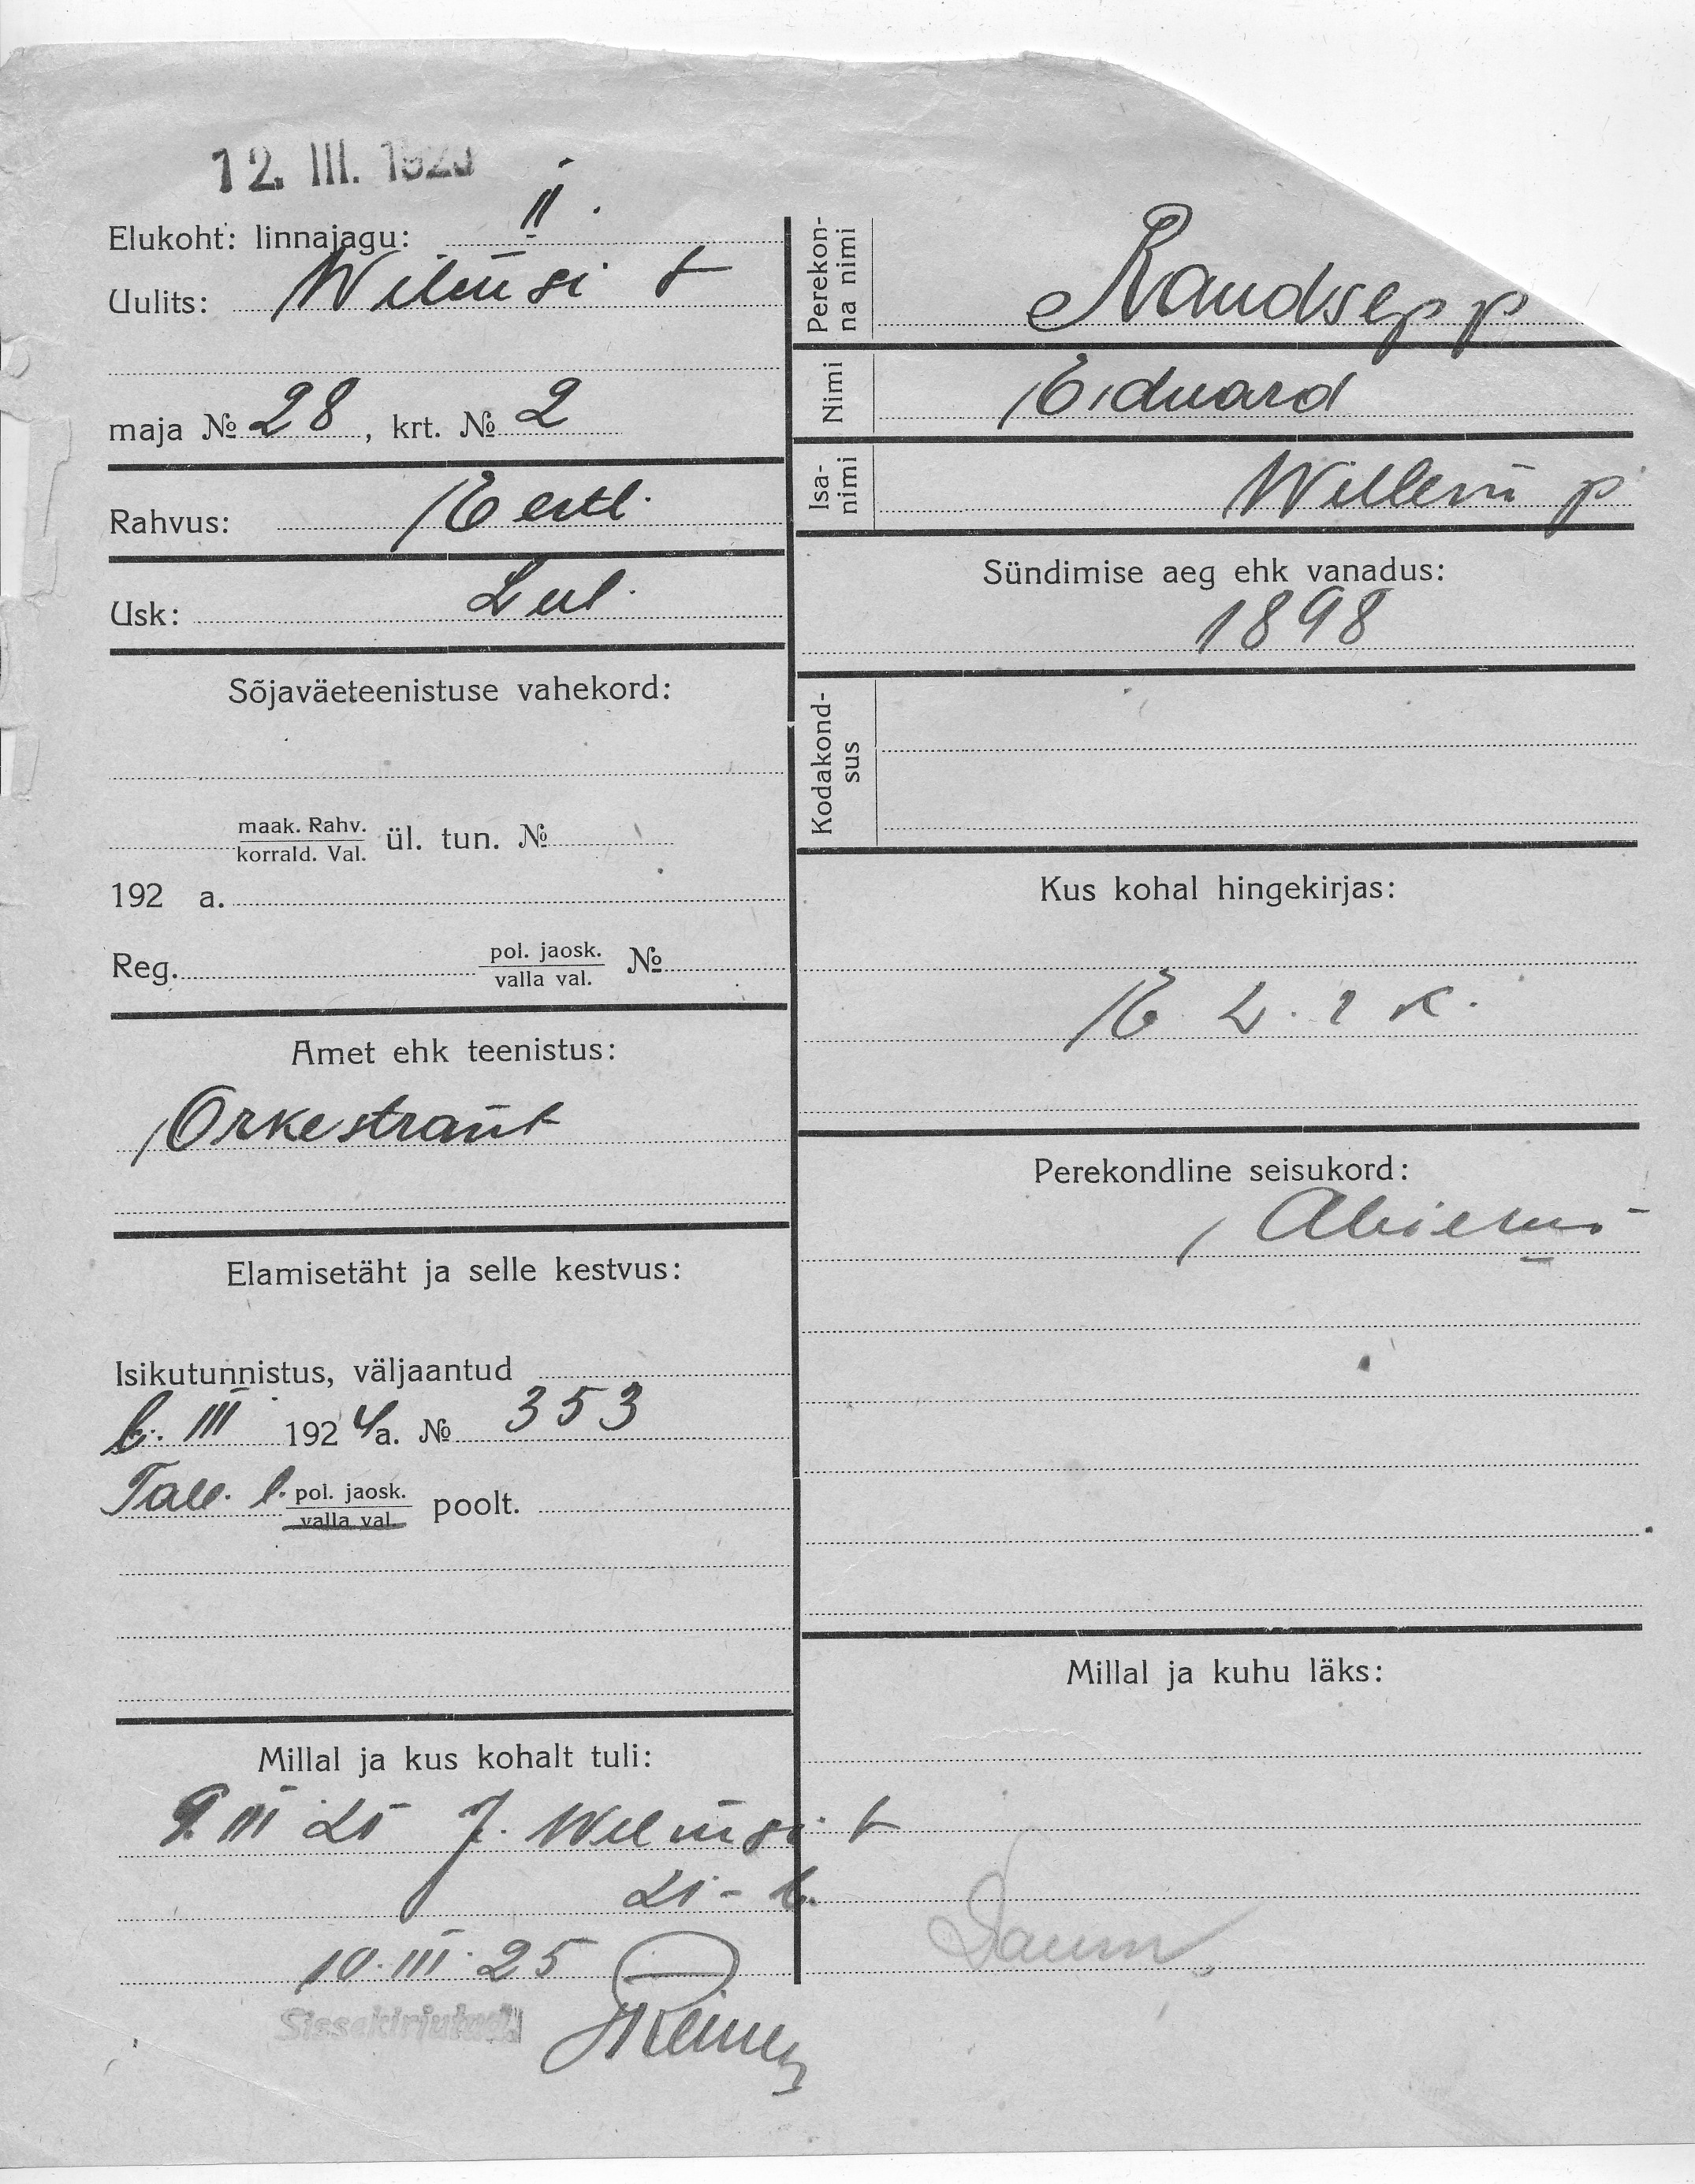 12. III. 192
Elukoht: linnajagu: II.
Uulits: Wilmsi t
maja № 28, krt. № 2
Rahvus: Eestl.
Usk: Lut.
Sõjaväeteenistuse vahekord:
maak. Rahv.
korrald. Val. ül. tun. №
192 a.
Reg. pol. jaosk.
valla val. №
Amet ehk teenistus:
Orkestrant
Elamisetäht ja selle kestvus:
Isikutunnistus, väljaantud
6. III 1924 a. № 353
Tall. l. pol. jaosk.
valla val. poolt.
Millal ja kus kohalt tuli:
9. III 25 J. Wilmsi t
10. III. 25
Sissekirjutud
Perekon-
na nimi
Raudsepp
Nimi
Eduard
Isa-
nimi
Willem p
Sündimise aeg ehk vanadus:
1898
Kodakond-
sus
Kus kohal hingekirjas:
Perekondline seisukord:
Abielus
Millal ja kuhu läks: